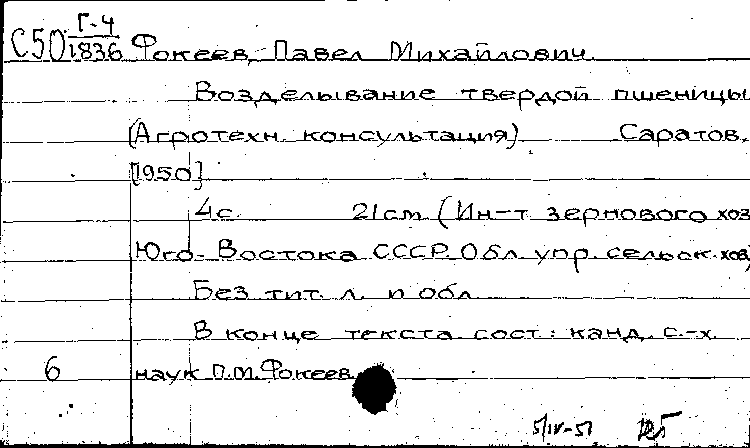 С50 Г-4
1836 Фокеев, Павел Михайлович.
Возделывание твердой пшеницы
(Агротехн. консультация) Саратов,
[1950]
4с. 21см. (Ин-т зернового хоз
Юго-Востока СССР. Обл. упр. сельск. хоз)
Без тит. л. и обл.
В конце текста сост.: канд. с.-х.
6 наук П.М. Фокеев.
5/IV-51